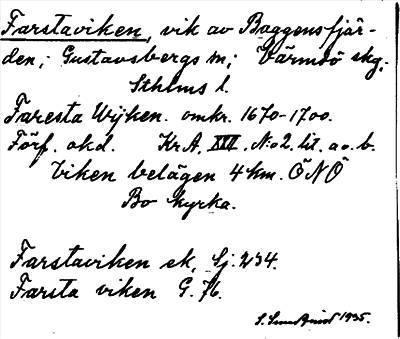 Farstaviken, vik av Baggensfjär-
den, Gustavsbergs m; Värmdö skg,
Sthlms l.
Faresta Wijken. omkr. 1670-1700.
Förf. okd. Kr.A. XIII. No 2. lit. a o. b.
Viken belägen 4 km. ÖNÖ
Bo kyrka.
Farstaviken ek, Sj. 234.
Farsta viken G. 76.
S. 1935.